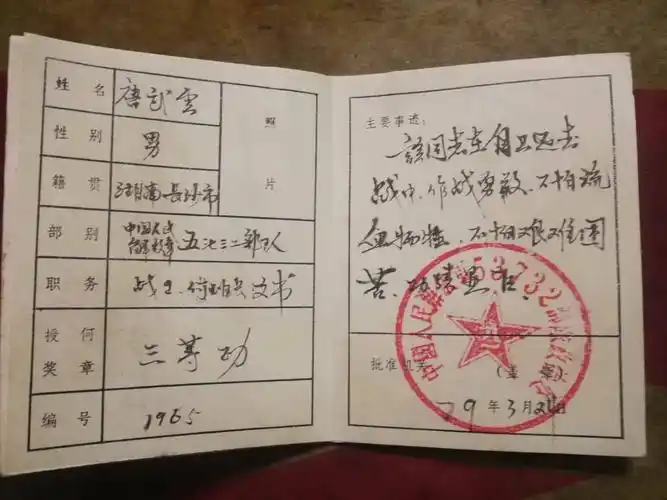 姓名 唐武云
性别 男
籍贯 湖南长沙市
照片
部别 中国人民 五七三二部队
职务 战士
授何奖章 三等功
编号 1965
主要事迹:
该同志在自卫还击
战中,作战勇敢,不怕流
血牺牲,不怕艰难困
苦,功绩显
批准机关
(盖章)
79年3月
中国人民 53732部队